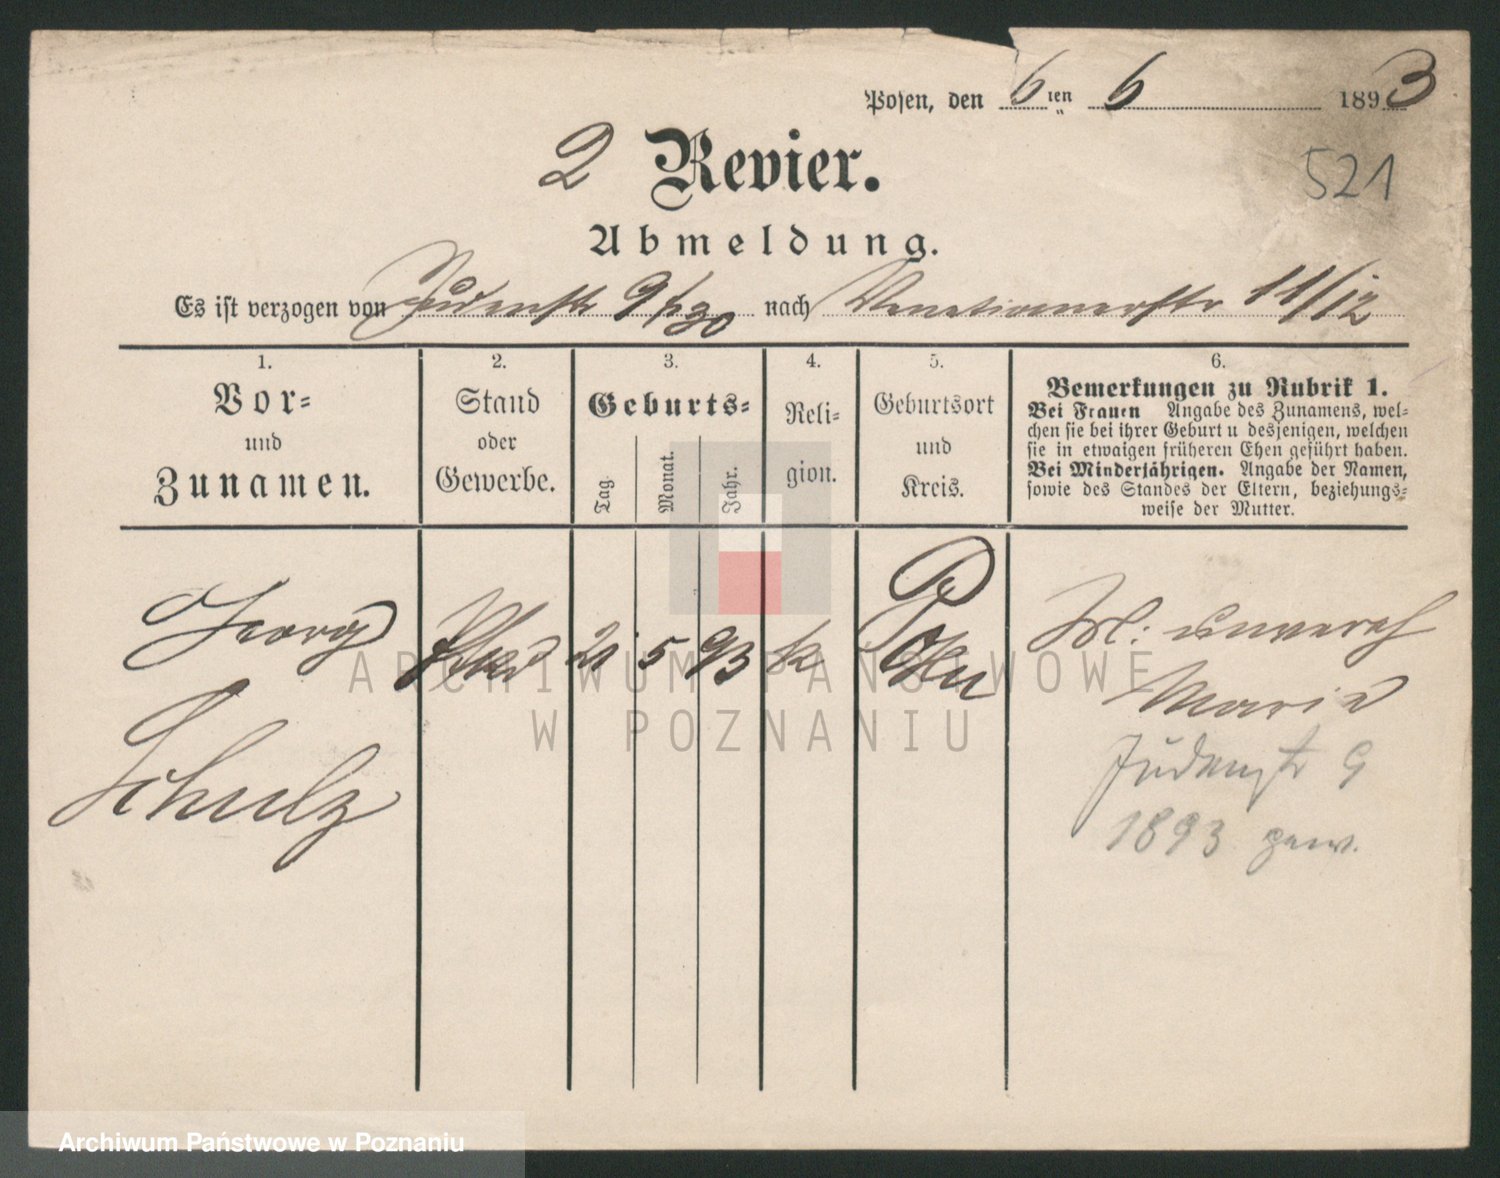 Posen, den 6 ten 6 1893
2 Revier.
521
Abmeldung.
Es ist verzogen von Judenstr 9 nach Venetianerstr 11/12
1. 2. 3. 4. 5. 6.
Vor-
und
Zunamen.
Stand
oder
Gewerbe.
Geburts-
Tag. Monat. Jahr.
Reli-
gion.
Geburtsort
und
Kreis.
Bemerkungen zu Rubrik 1.
Bei Frauen Angabe des Zunamens, wel-
chen sie bei ihrer Geburt u desjenigen, welchen
sie in etwaigen früheren Ehen geführt haben.
Bei Minderjährigen. Angabe der Namen,
sowie des Standes der Eltern, beziehungs-
weise der Mutter.
Georg
Schulz
21 5 93 k
Posen
M: unvereh
Maria
Judenstr 9
1893 gew.
ARCHIWUM PAŃSTWOWE
W POZNANIU
Archiwum Państwowe w Poznaniu